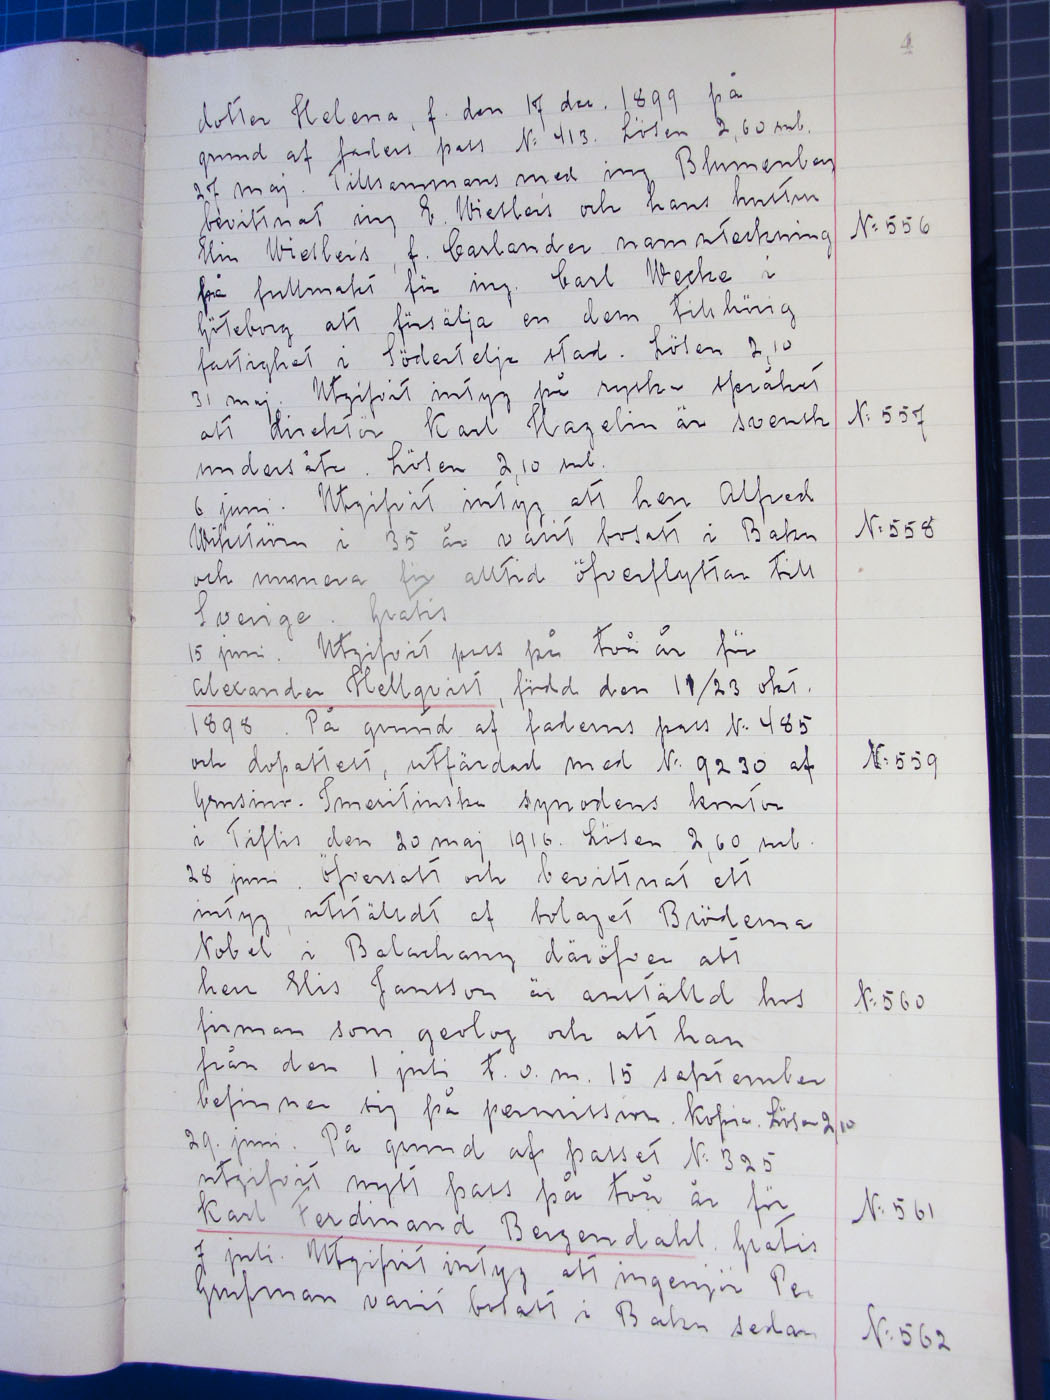 4
dotter Helena, f. den 17 dec. 1899 på
grund af faders pass N: 413. Lösen 2,60 rub.
27 maj. Tillsammans med ing Blumenberg
bevittnat ing E. Wiesleis och hans hustru
Elin Wiesleis, f. Carlander namnteckning N: 556
på fullmakt för ing. Carl Wecke i
Göteborg att försälja en dem tillhörig
fastighet i Södertelje stad. Lösen 2,10
31 maj. Utgifvit intyg på ryska språket
att direktör Karl Hagelin är svensk N: 557
undersåte. Lösen 2,10 rub.
6 juni. Utgifvit intyg att herr Alfred
Wikström i 35 år varit bosatt i Baku N: 558
och numera för alltid öfverflyttar till
Sverige. Gratis
15 juni. Utgifvit pass på två år för
Alexander Hellqvist, född den 11/23 okt.
1898. På grund af faderns pass N: 485
och dopattest, utfärdad med N: 9230 af N: 559
Grusino-Imeritinska synodens kontor
i Tiflis den 20 maj 1916. Lösen 2,60 rub.
28 juni. Öfversatt och bevittnat ett
intyg, utställdt af bolaget Bröderna
Nobel i Balachany däröfver att
herr Elis Jansson är anställd hos N: 560
firman som geolog och att han
från den 1 juli t.o.m. 15 september
befinner sig på permission. Kopia. Lösen 2,10
29. juni. På grund af passet N: 325
utgifvit nytt pass på två år för
Karl Ferdinand Bergendahl. Gratis N: 561
7 juli. Utgifvit intyg att ingenjör Per
Grufman varit bosatt i Baku sedan N: 562